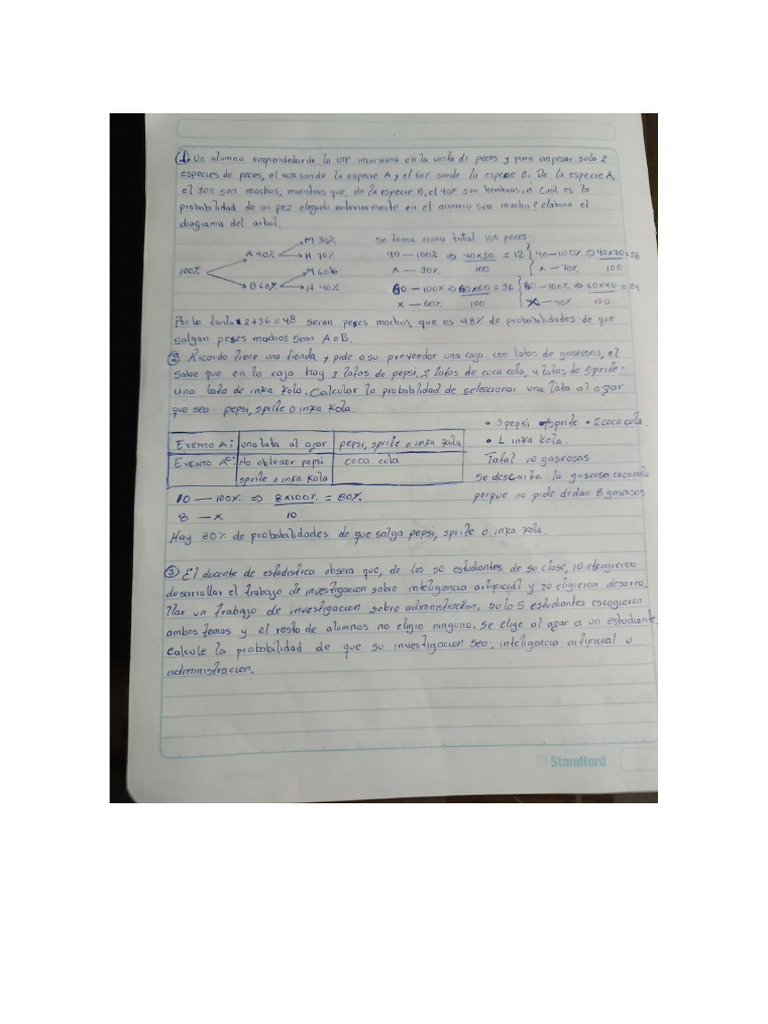 ① Un alumno emprendedor de la UTP incursiona en la venta de peces y para empesar solo 2
especies de peces, el 40% son de la especie A y el 60% son de la especie B. De la especie A,
el 30% son machos; mientras que, de la especie B, el 40% son hembras. ¿ Cual es la
probabilidad de un pez elegido anteriormente en el acuario sea macho? elabore el
diagrama del arbol.
100%
A 40%
B 60%
M 30%
H 70%
M 60%
H 40%
Se toma como total 100 peces:
40 — 100% ⇒ 40x30 = 12 40 — 100% ⇒ 40x70 = 28
x — 30% 100 x — 70% 100
60 — 100% ⇒ 60x60 = 36 60 — 100% ⇒ 60x40 = 24
x — 60% 100 x — 40% 100
Por lo tanto 12+36 = 48 seran peses machos, que es 48% de probabilidades de que
salgan peses machos sean A o B.
② Ricardo tiene una tienda y pide a su proveedor una caja con latas de gaseosas, el
sabe que en la caja hay 3 latas de pepsi, 2 latas de coca cola, 4 latas de sprite:
una lata de inka Kola. Calcular la probabilidad de seleccionar una lata al azar
que sea pepsi, sprite o inka Kola.
• 3 pepsi • 4 sprite • 2 coca cola.
• 1 inka Kola.
Total 10 gaseosas
Se descarta la gaseosa coca cola
porque no pide dedan 8 gaseosas
EVENTO A: una lata al azar pepsi, sprite o inka Kola
EVENTO Aᶜ: No obtener pepsi sprite o inka Kola coca cola
10 — 100% ⇒ 8x100% = 80%
8 — x 10
Hay 80% de probabilidades de que salga pepsi, sprite o inka Kola.
③ El docente de estadistica observa que, de los 50 estudiantes de su clase, 10 escogieron
desarrollar el trabajo de investigacion sobre inteligencia artificial y 20 eligieron desarro-
llar un trabajo de investigacion sobre administracion. Solo 5 estudiantes escogieron
ambos temas y el resto de alumnos no eligio ninguno. Se elige al azar a un estudiante,
calcule la probabilidad de que su investigacion sea: inteligencia artificial o
administracion.
Standford